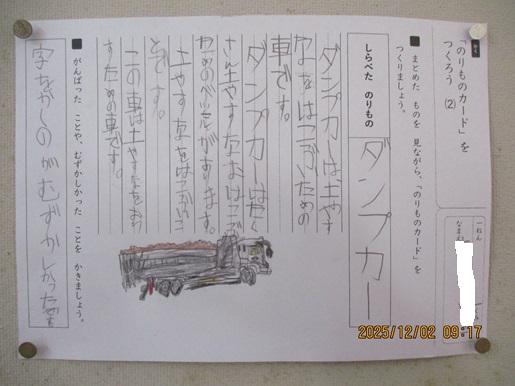 「のりものカード」を
つくろう (2)
一ねん
なまえ
■ まとめた ものを 見ながら、「のりものカード」を
つくりましょう。
しらべた のりもの
ダンプカー
ダンプカーは土やす
なをはこぶための
車です。
ダンプカーはたく
さん土やすなをはこぶ
ためのベッセルがあります。
土やすなをはこぶ
とです。
この車は土やすなをおろ
すための車です。
■ がんばった ことや、むずかしかった ことを かきましょう。
字をかくのがむずかしかったです
2025/12/02 09:17